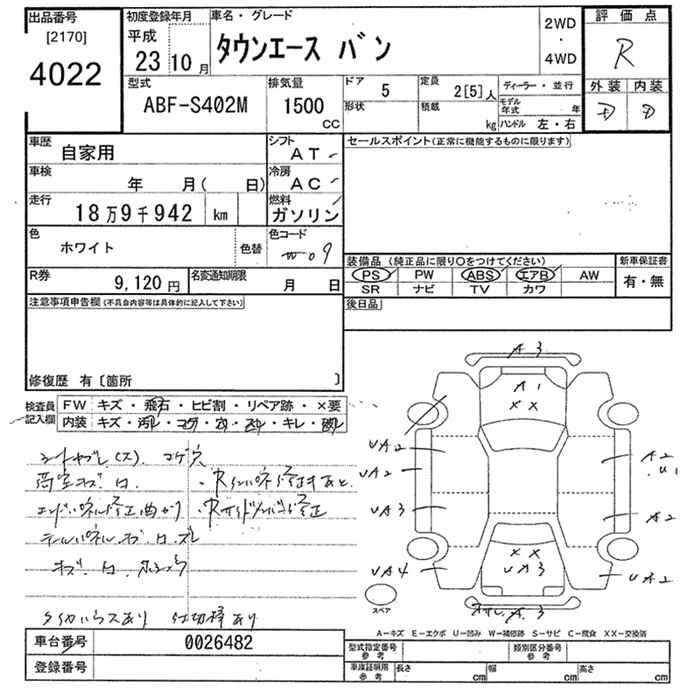 出品番号 初度登録年月 車名・グレード 2WD・4WD 評価点
[2170] 平成 R
4022 23 10月 タウンエース バン
外装 内装
D D
型式 排気量 ドア 5 定員 2[5]人 ディーラー・並行
ABF-S402M 1500 cc 形状 積載 kg モデル年式 年
ハンドル 左・右
車歴 自家用 シフト AT セールスポイント(正常に機能するものに限ります)
車検 年 月( 日) 冷房 AC
走行 18万9千942 km 燃料 ガソリン
色 ホワイト 色替 色コード W09
装備品(純正品に限り○をつけてください) 新車保証書
PS PW ABS エアB AW 有・無
SR ナビ TV カワ
R券 9,120円 名変通知期限 月 日
後日品
注意事項申告欄(不具合内容等は具体的に記入して下さい)
修復歴 有〔箇所 〕
検査員記入欄
FW キズ・飛石・ヒビ割・リペア跡・×要
内装 キズ・汚レ・コゲ・キレ
シートヤブレ(ス).コゲ穴
荷室キズ.凹.
・Rインパネル修正有あと.
エンドパネル修正曲がり
テールパネルキズ凹ズレ
キズ.凹
タイヤハウスあり 仕切棒あり
A3
A1
XX
UA2
UA2
UA3
UA4
A2
U1
A2
UA2
XX
UA3
A3
スペア
A―キズ E―エクボ U―凹み W―補修跡 S―サビ C―腐食 XX―交換済
車台番号 0026482
登録番号
型式指定番号 参考 類別区分番号 参考
車庫証明用 参考 長さ cm 幅 cm 高さ cm